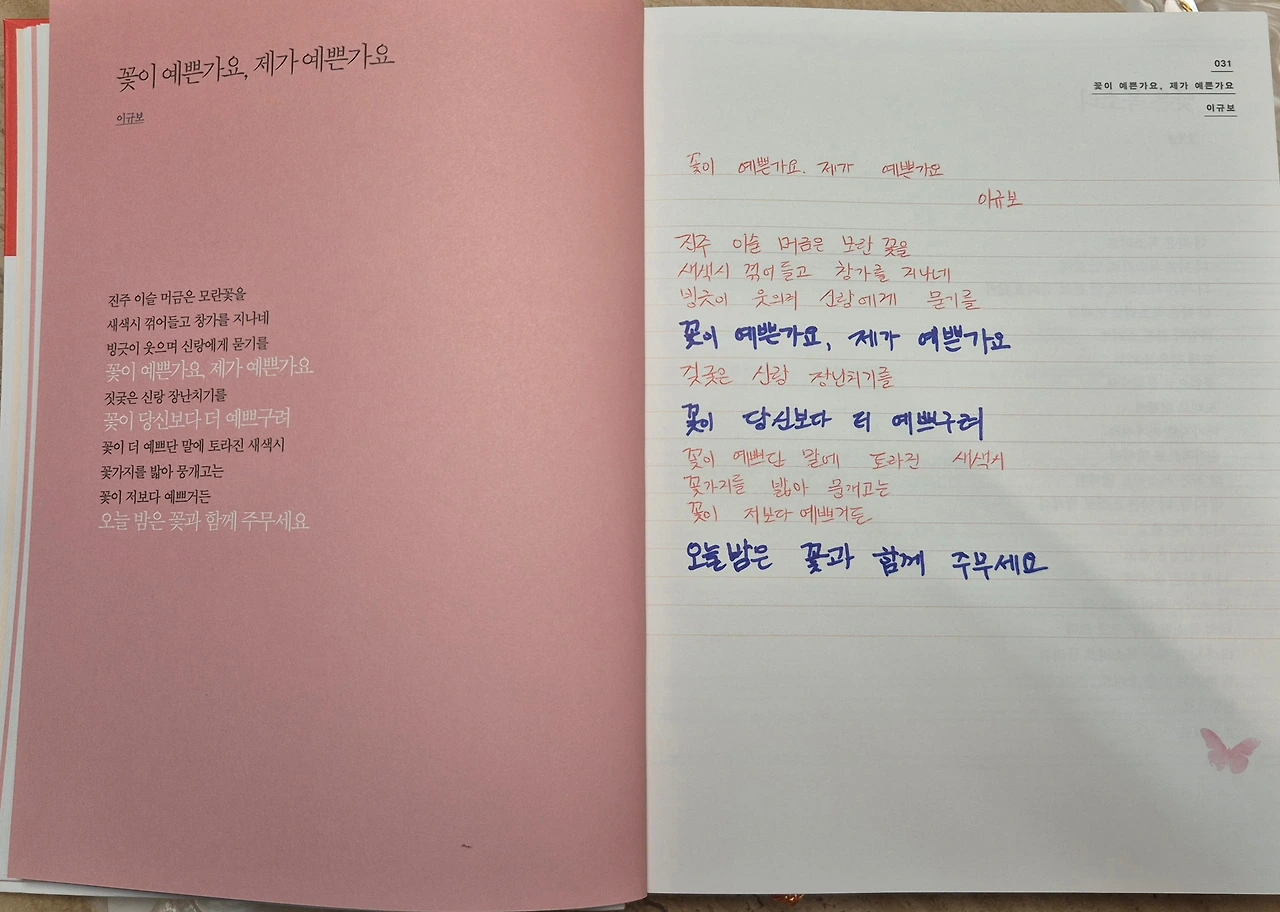 꽃이 예쁜가요, 제가 예쁜가요
이규보
진주 이슬 머금은 모란꽃을
새색시 꺾어들고 창가를 지나네
빙긋이 웃으며 신랑에게 묻기를
꽃이 예쁜가요, 제가 예쁜가요
짓궂은 신랑 장난치기를
꽃이 당신보다 더 예쁘구려
꽃이 더 예쁘단 말에 토라진 새색시
꽃가지를 밟아 뭉개고는
꽃이 저보다 예쁘거든
오늘 밤은 꽃과 함께 주무세요
031
꽃이 예쁜가요, 제가 예쁜가요
이규보
꽃이 예쁜가요. 제가 예쁜가요
이규보
진주 이슬 머금은 모란 꽃을
새색시 꺾어들고 창가를 지나네
빙긋이 웃의며 신랑에게 묻기를
꽃이 예쁜가요, 제가 예쁜가요
짖궂은 신랑 장난치기를
꽃이 당신보다 더 예쁘구려
꽃이 예쁘단 말에 토라진 새색시
꽃가지를 밟아 뭉개고는
꽃이 저보다 예쁘거든
오늘밤은 꽃과 함께 주무세요